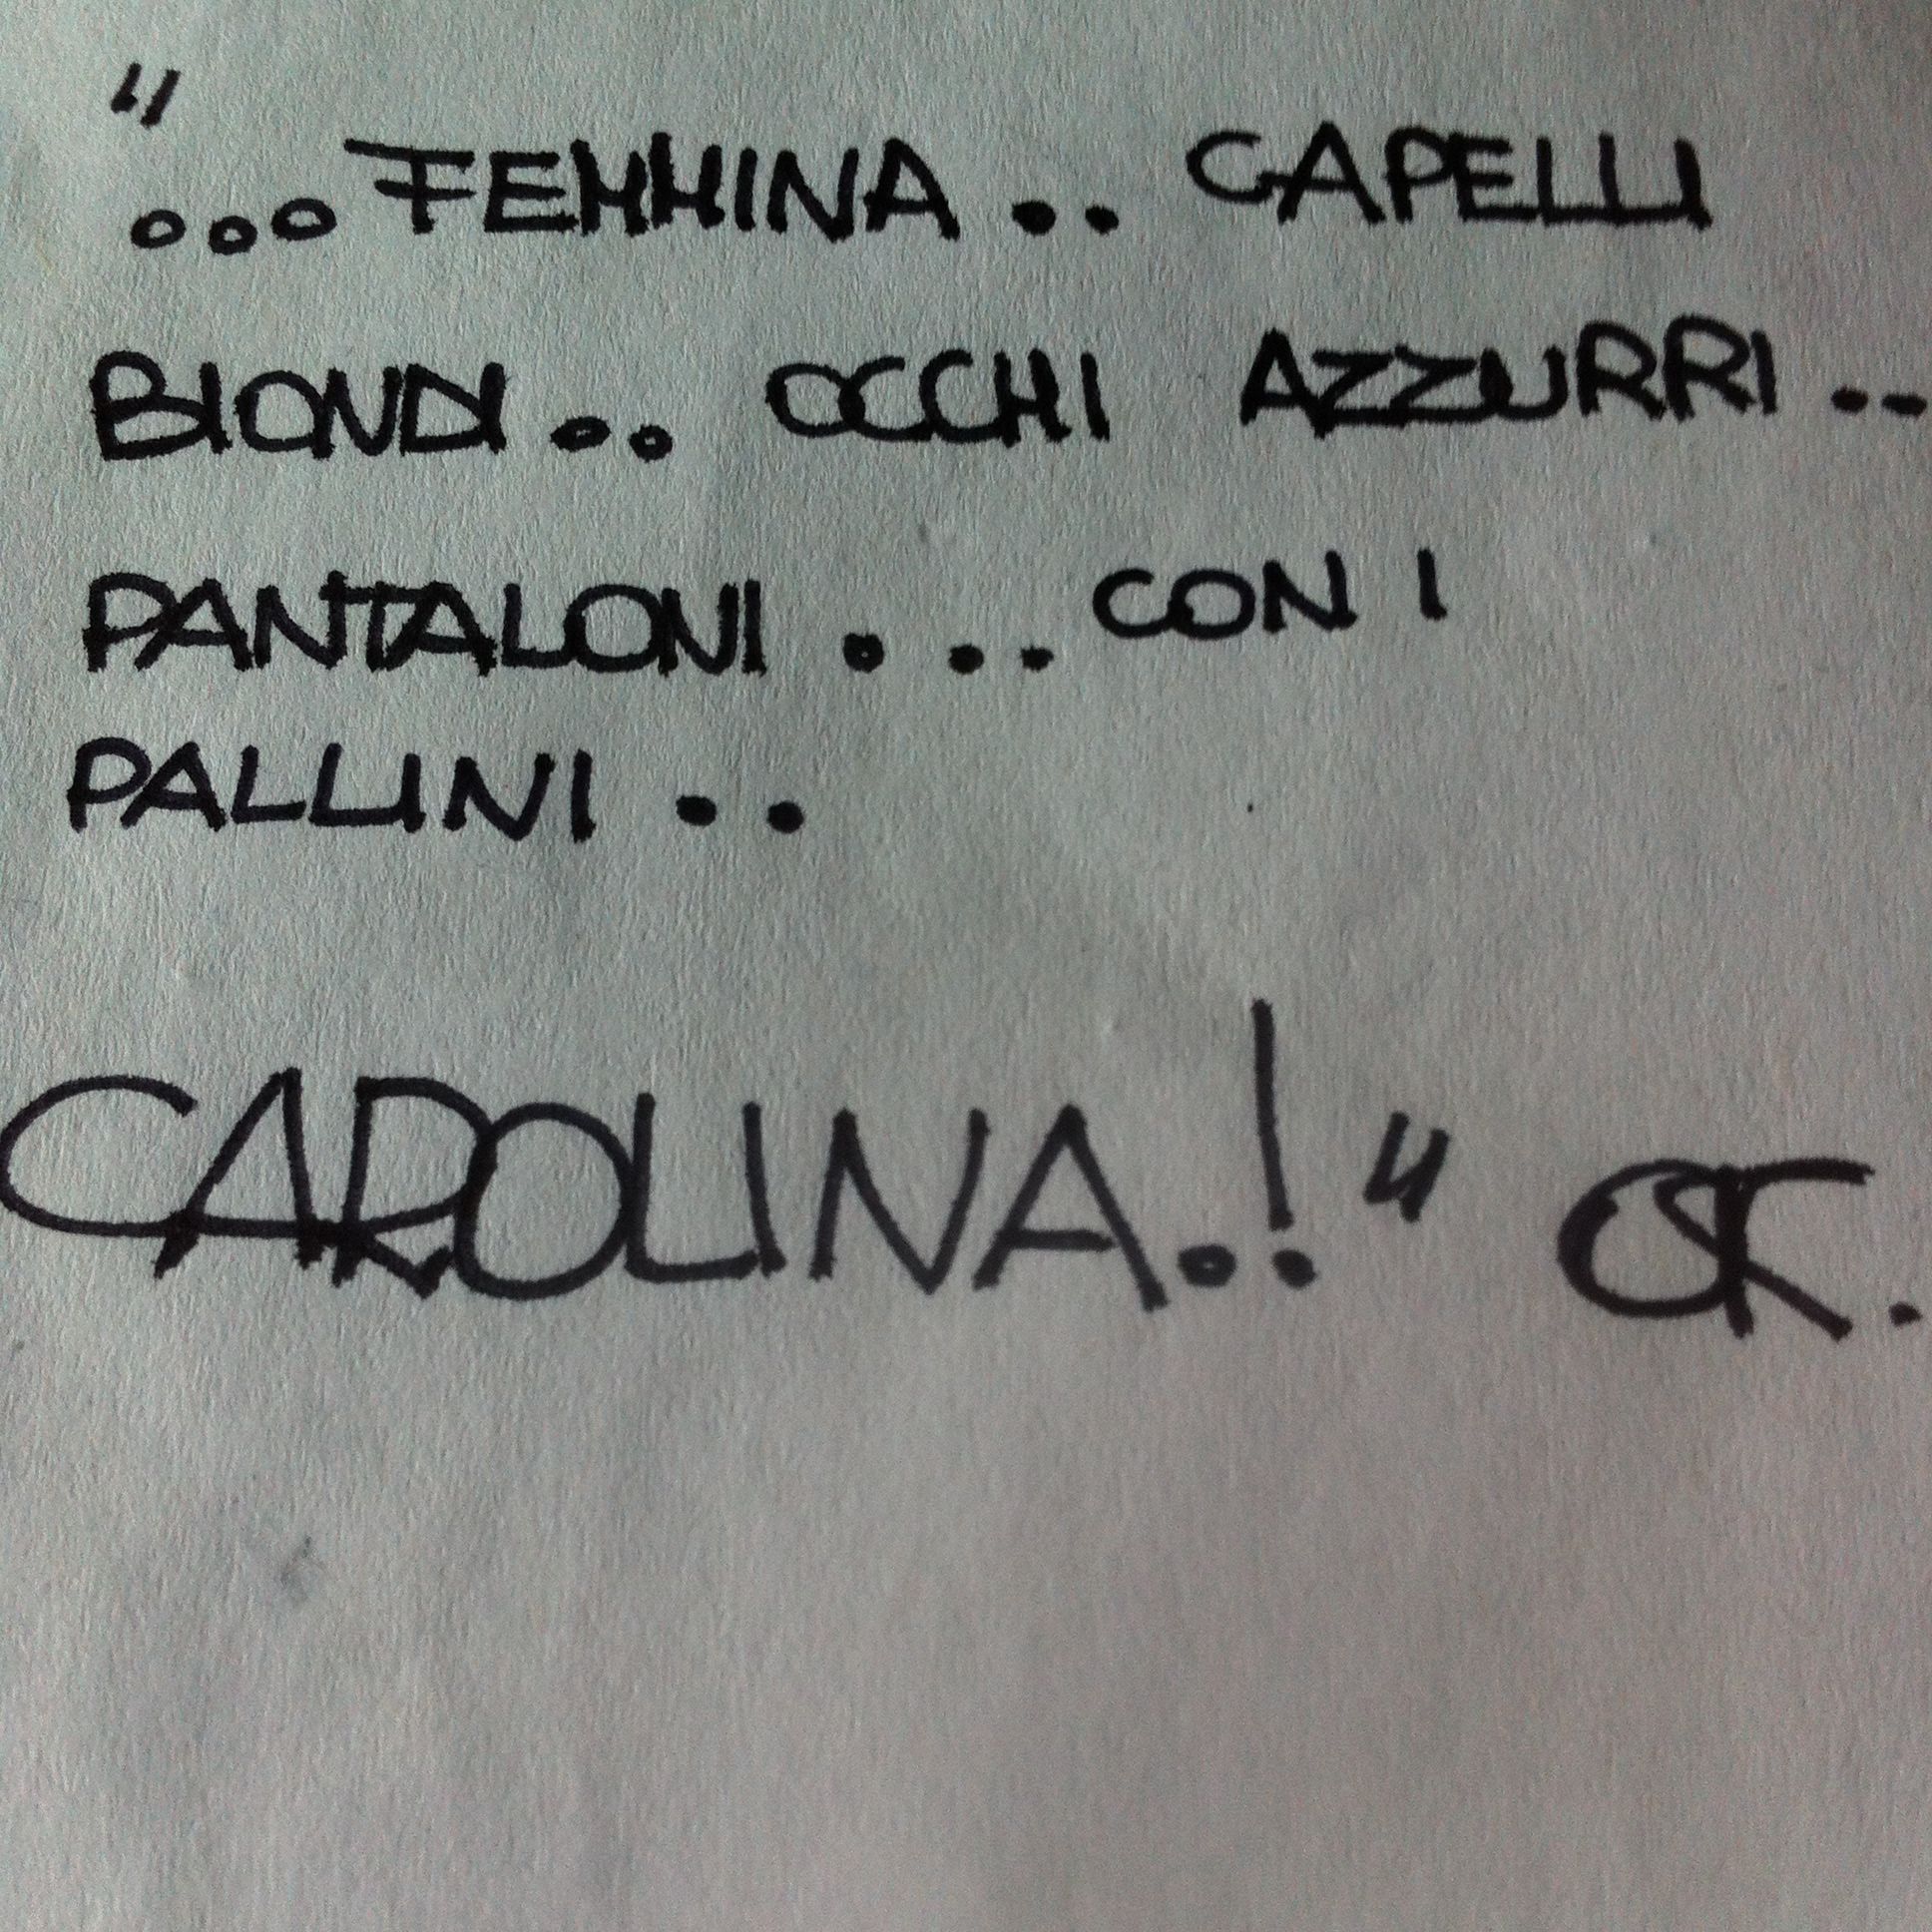 "...FEMMINA.. CAPELLI
BIONDI.. OCCHI AZZURRI..
PANTALONI...CON I
PALLINI..
CAROLINA.!" OK.